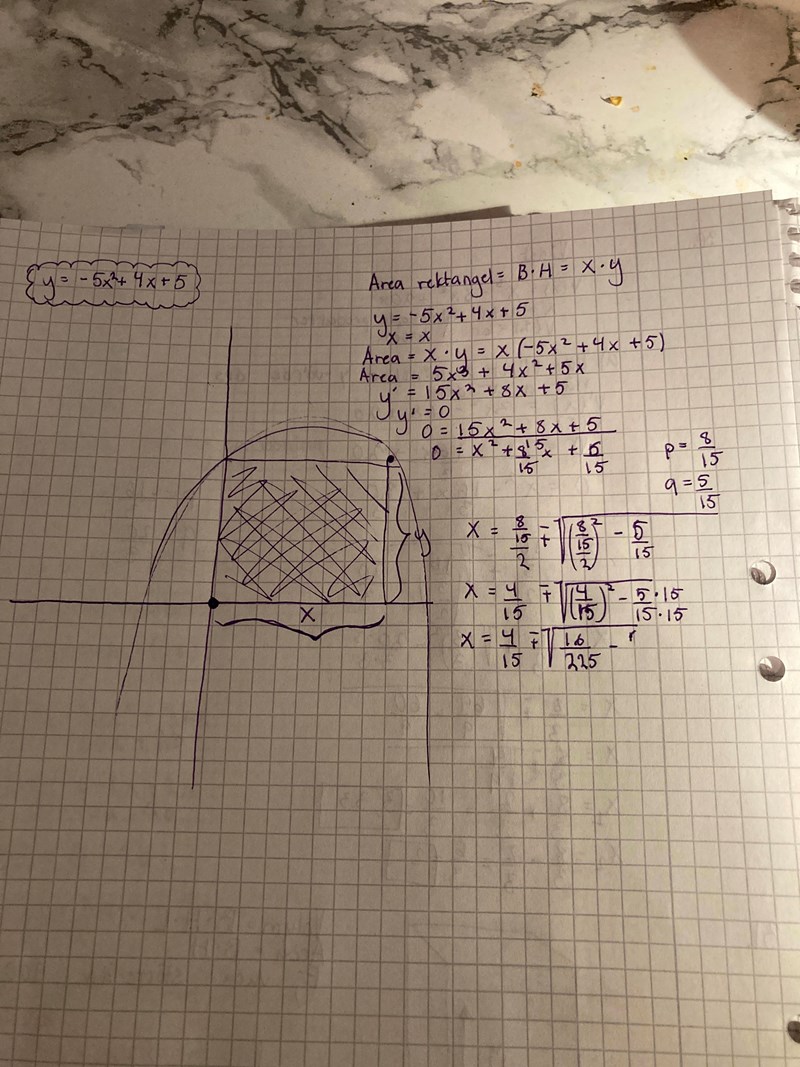 y = -5x²+ 4x+5
Area rektangel = B·H = X·y
y = -5x²+4x+5
x = x
Area = X·y = x(-5x²+4x+5)
Area = 5x³ + 4x²+5x
y' = 15x² + 8x +5
y' = 0
0 = 15x² + 8x + 5
15
0 = x² + 8/15 x + 5/15
p = 8/15
q = 5/15
X = 8/15/2 ∓ √(8/15/2)² - 5/15
X = 4/15 ∓ √(4/15)² - 5·15/15·15
X = 4/15 ∓ √16/225 -
y
X